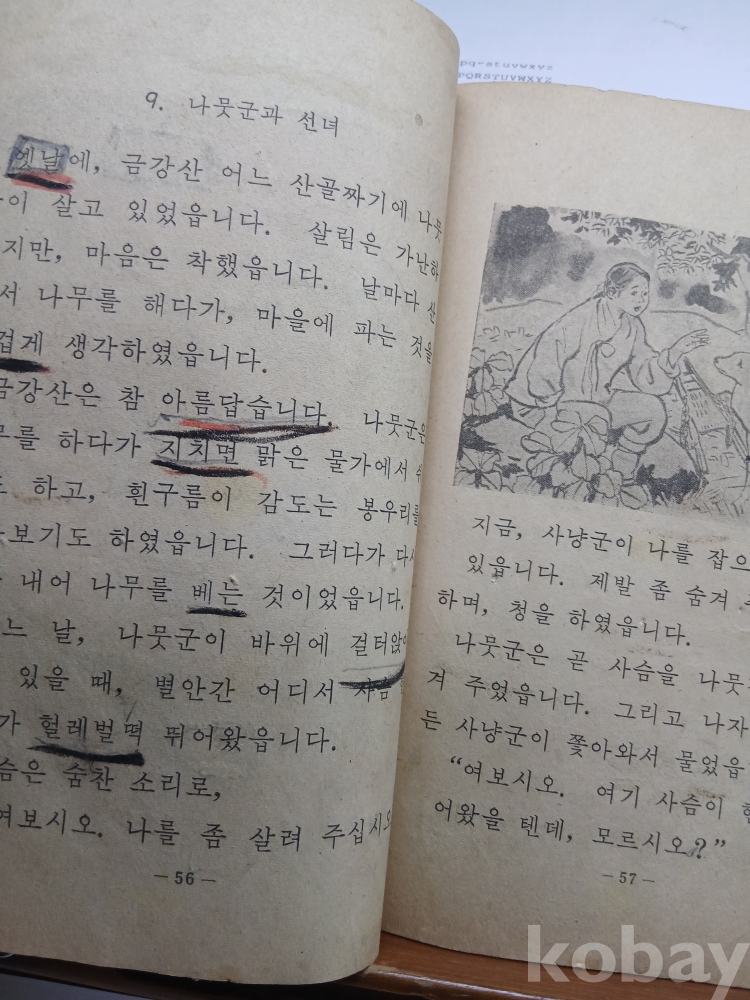 9. 나뭇군과 선녀
옛날에, 금강산 어느 산골짜기에 나뭇
이 살고 있었읍니다. 살림은 가난하
지만, 마음은 착했읍니다. 날마다 산
서 나무를 해다가, 마을에 파는 것을
겁게 생각하였읍니다.
금강산은 참 아름답습니다. 나뭇군은
를 하다가 지치면 맑은 물가에서 쉬
하고, 흰구름이 감도는 봉우리를
보기도 하였읍니다. 그러다가 다시
내어 나무를 베는 것이었읍니다.
느 날, 나뭇군이 바위에 걸터앉아
있을 때, 별안간 어디서 사슴
가 헐레벌떡 뛰어왔읍니다.
슴은 숨찬 소리로,
여보시오. 나를 좀 살려 주십시오
—56—
pq-stuvwxyz
PQRSTUVWXYZ
지금, 사냥군이 나를 잡으
있읍니다. 제발 좀 숨겨
하며, 청을 하였읍니다.
나뭇군은 곧 사슴을 나뭇
겨 주었읍니다. 그리고 나자
든 사냥군이 쫓아와서 물었읍
“여보시오. 여기 사슴이 한
어왔을 텐데, 모르시오?”
—57—
kobay